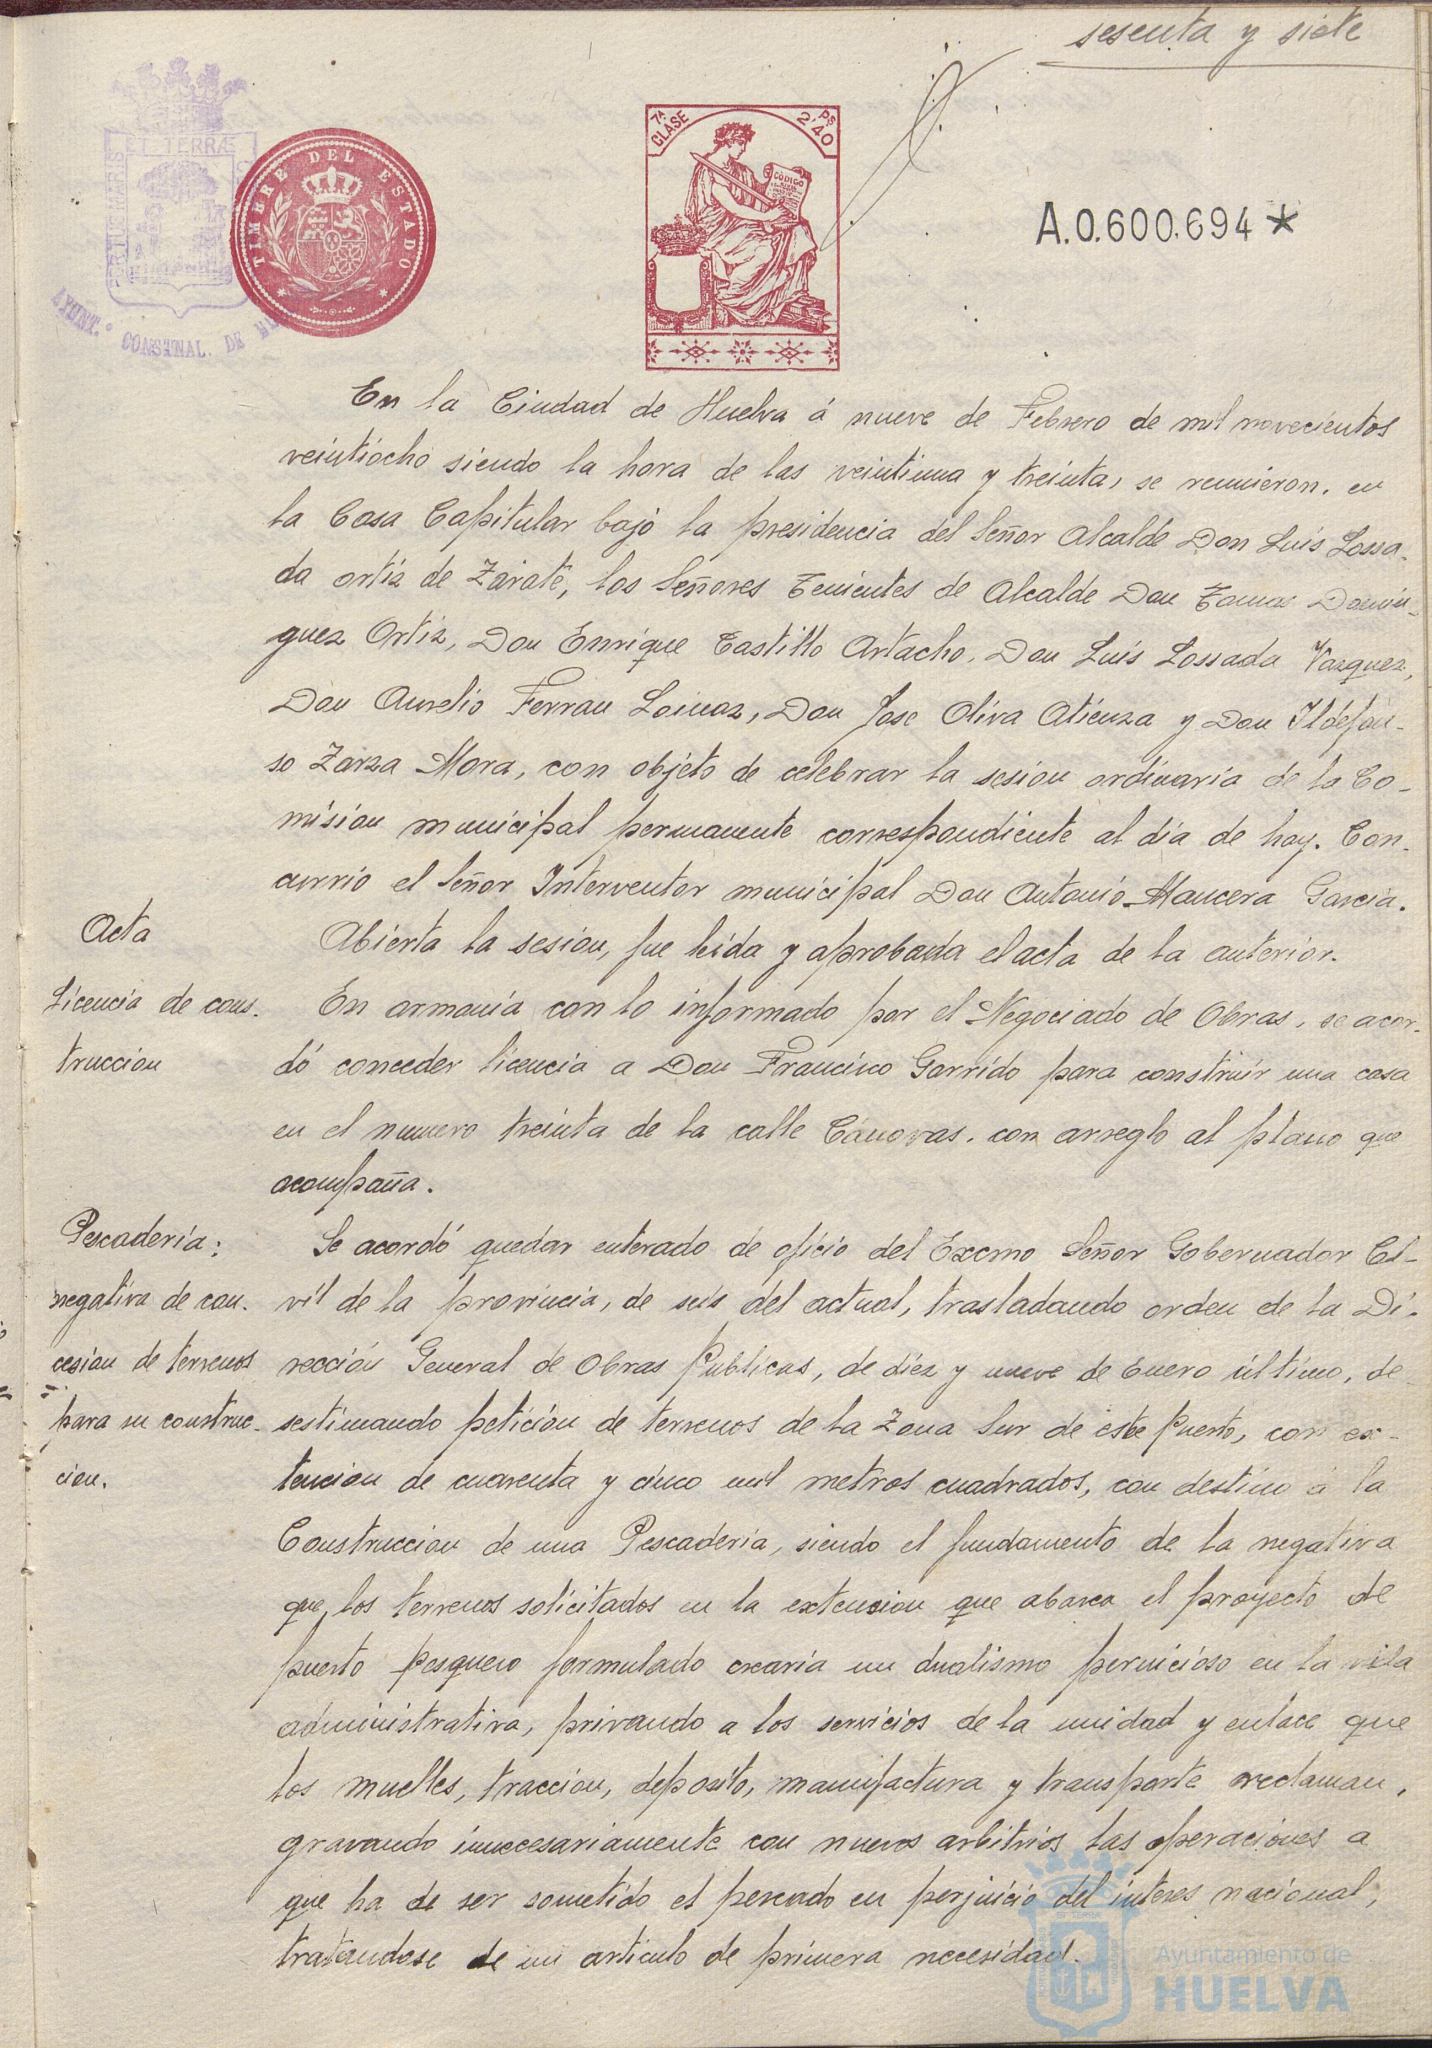 sesenta y siete
PORTUS MARIS
ET TERRÆ
AYUNT.º CONSTNAL. DE
TIMBRE DEL ESTADO
7ª CLASE
Ps 2'40
CÓDIGO
A.0.600.694*
En la Ciudad de Huelva á nueve de Febrero de mil novecientos
veintiocho siendo la hora de las veintiuna y treinta, se reunieron, en
la Casa Capitular bajo la presidencia del Señor Alcalde Don Luis Lossa-
da Ortiz de Zárate, los Señores Tenientes de Alcalde Don Tomas Domin-
guez Ortiz, Don Enrique Castillo Artacho, Don Luis Lossada Vazquez,
Don Aurelio Ferran Loinaz, Don Jose Oliva Atienza y Don Ildefon-
so Zarza Mora, con objeto de celebrar la sesion ordinaria de la Co-
mision municipal permanente correspondiente al dia de hoy. Con-
currio el Señor Interventor municipal Don Antonio Mancera Garcia.
Acta
Abierta la sesion, fue leida y aprobada el acta de la anterior.
Licencia de cons-
truccion
En armonia con lo informado por el Negociado de Obras, se acor-
dó conceder licencia a Don Francisco Garrido para construir una casa
en el numero treinta de la calle Cánovas, con arreglo al plano que
acompaña.
Pescaderia:
negativa de con-
cesion de terrenos
para su construc-
cion.
Se acordó quedar enterado de oficio del Excmo Señor Gobernador Ci-
vil de la provincia, de seis del actual, trasladando orden de la Di-
rección General de Obras Publicas, de diez y nueve de Enero último, de-
sestimando petición de terrenos de la Zona Sur de este Puerto, con ex-
tencion de cuarenta y cinco mil metros cuadrados, con destino á la
Construccion de una Pescaderia, siendo el fundamento de la negativa
que, los terrenos solicitados en la extension que abarca el proyecto de
puerto pesquero formulado crearia un dualismo pernicioso en la vida
administrativa, privando a los servicios de la unidad y enlace que
los muelles, traccion, deposito, manufactura y transporte reclaman,
gravando innecesariamente con nuevos arbitrios las operaciones a
que ha de ser sometido el pescado en perjuicio del interes nacional,
tratandose de un articulo de primera necesidad.
Ayuntamiento de
HUELVA